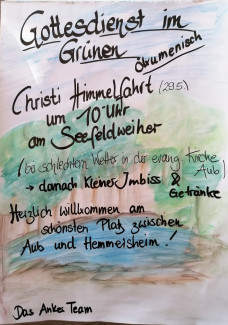 Gottesdienst im
Grünen
Ökumenisch
Christi Himmelfahrt (29.5)
um 10 Uhr
am Seefeldweiher
(bei schlechtem Wetter in der evang. Kirche
Aub)
→ danach kleiner Imbiss &
Getränke
Herzlich willkommen am
schönsten Platz zwischen
Aub und Hemmersheim!
Das Anker Team